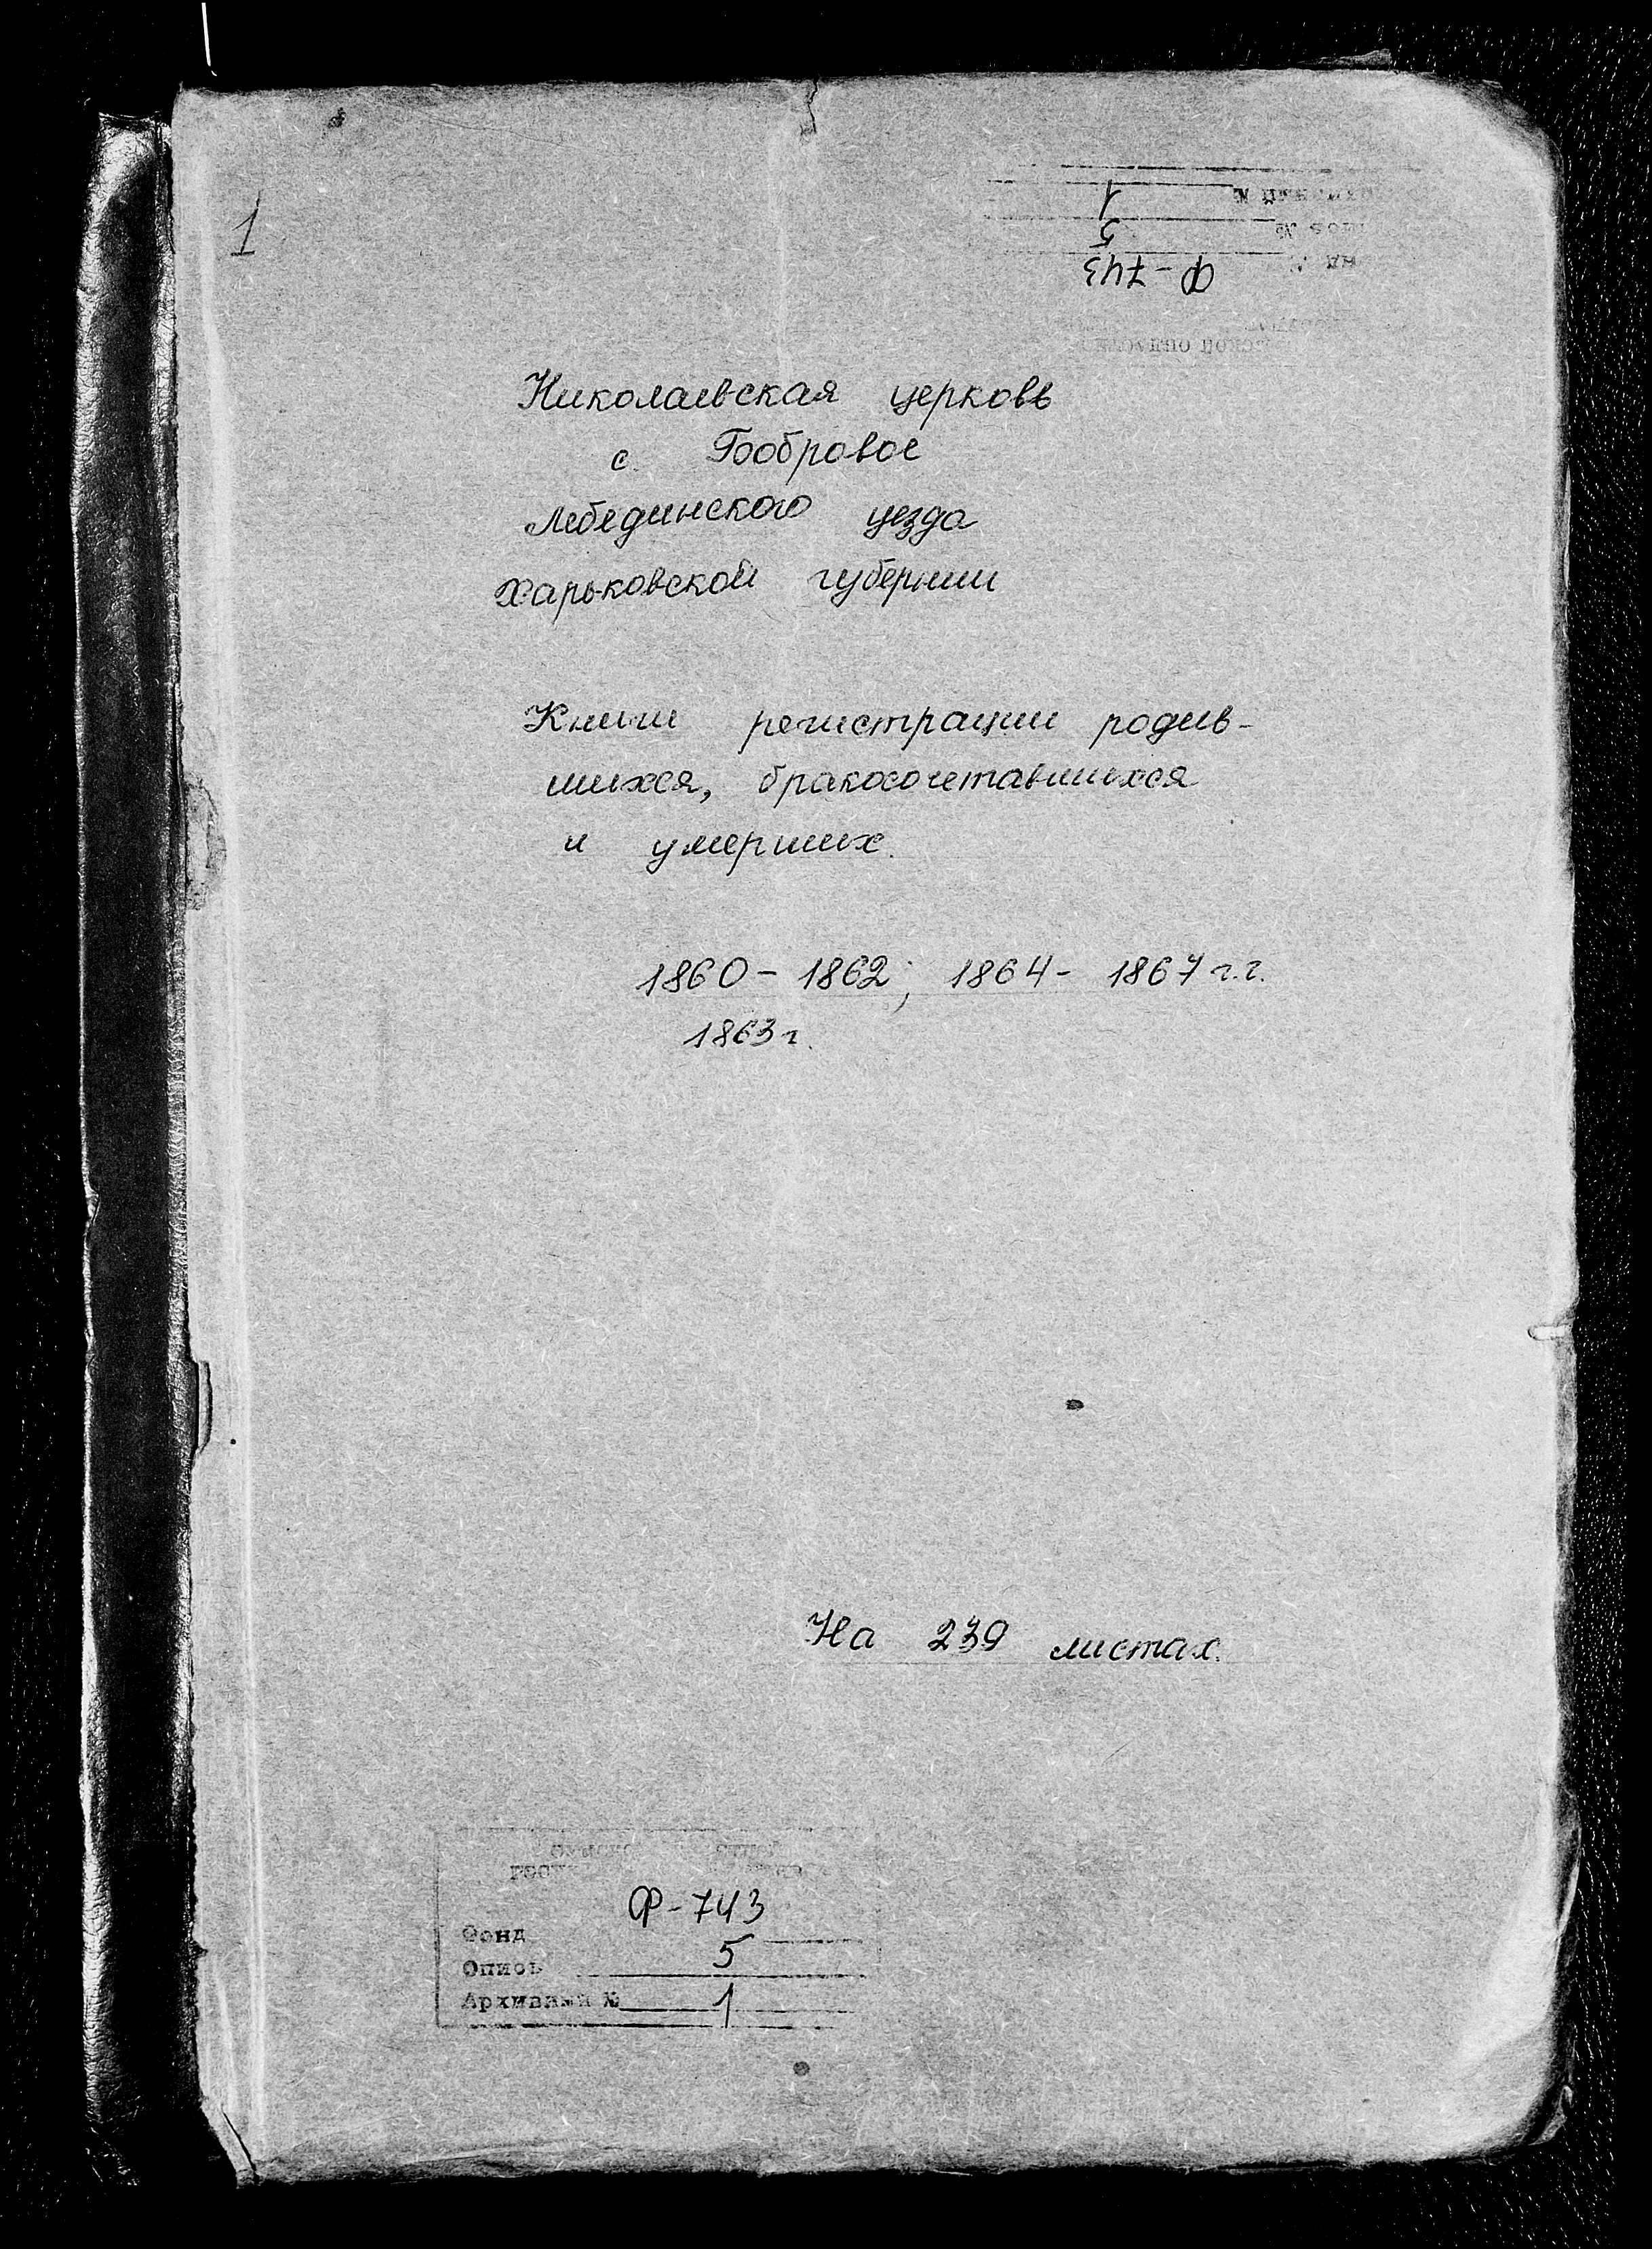 1
Архивный № 1
Опись № 5
Фонд Ф-743
Николаевская церковь
с. Бобровое
Лебединского уезда
Харьковской губернии
Книги регистрации родив-
шихся, бракосочетавшихся
и умерших.
1860 - 1862; 1864 - 1867 г.г.
1863 г.
На 239 листах.
Ф-743
Фонд
Опись 5
Архивный № 1